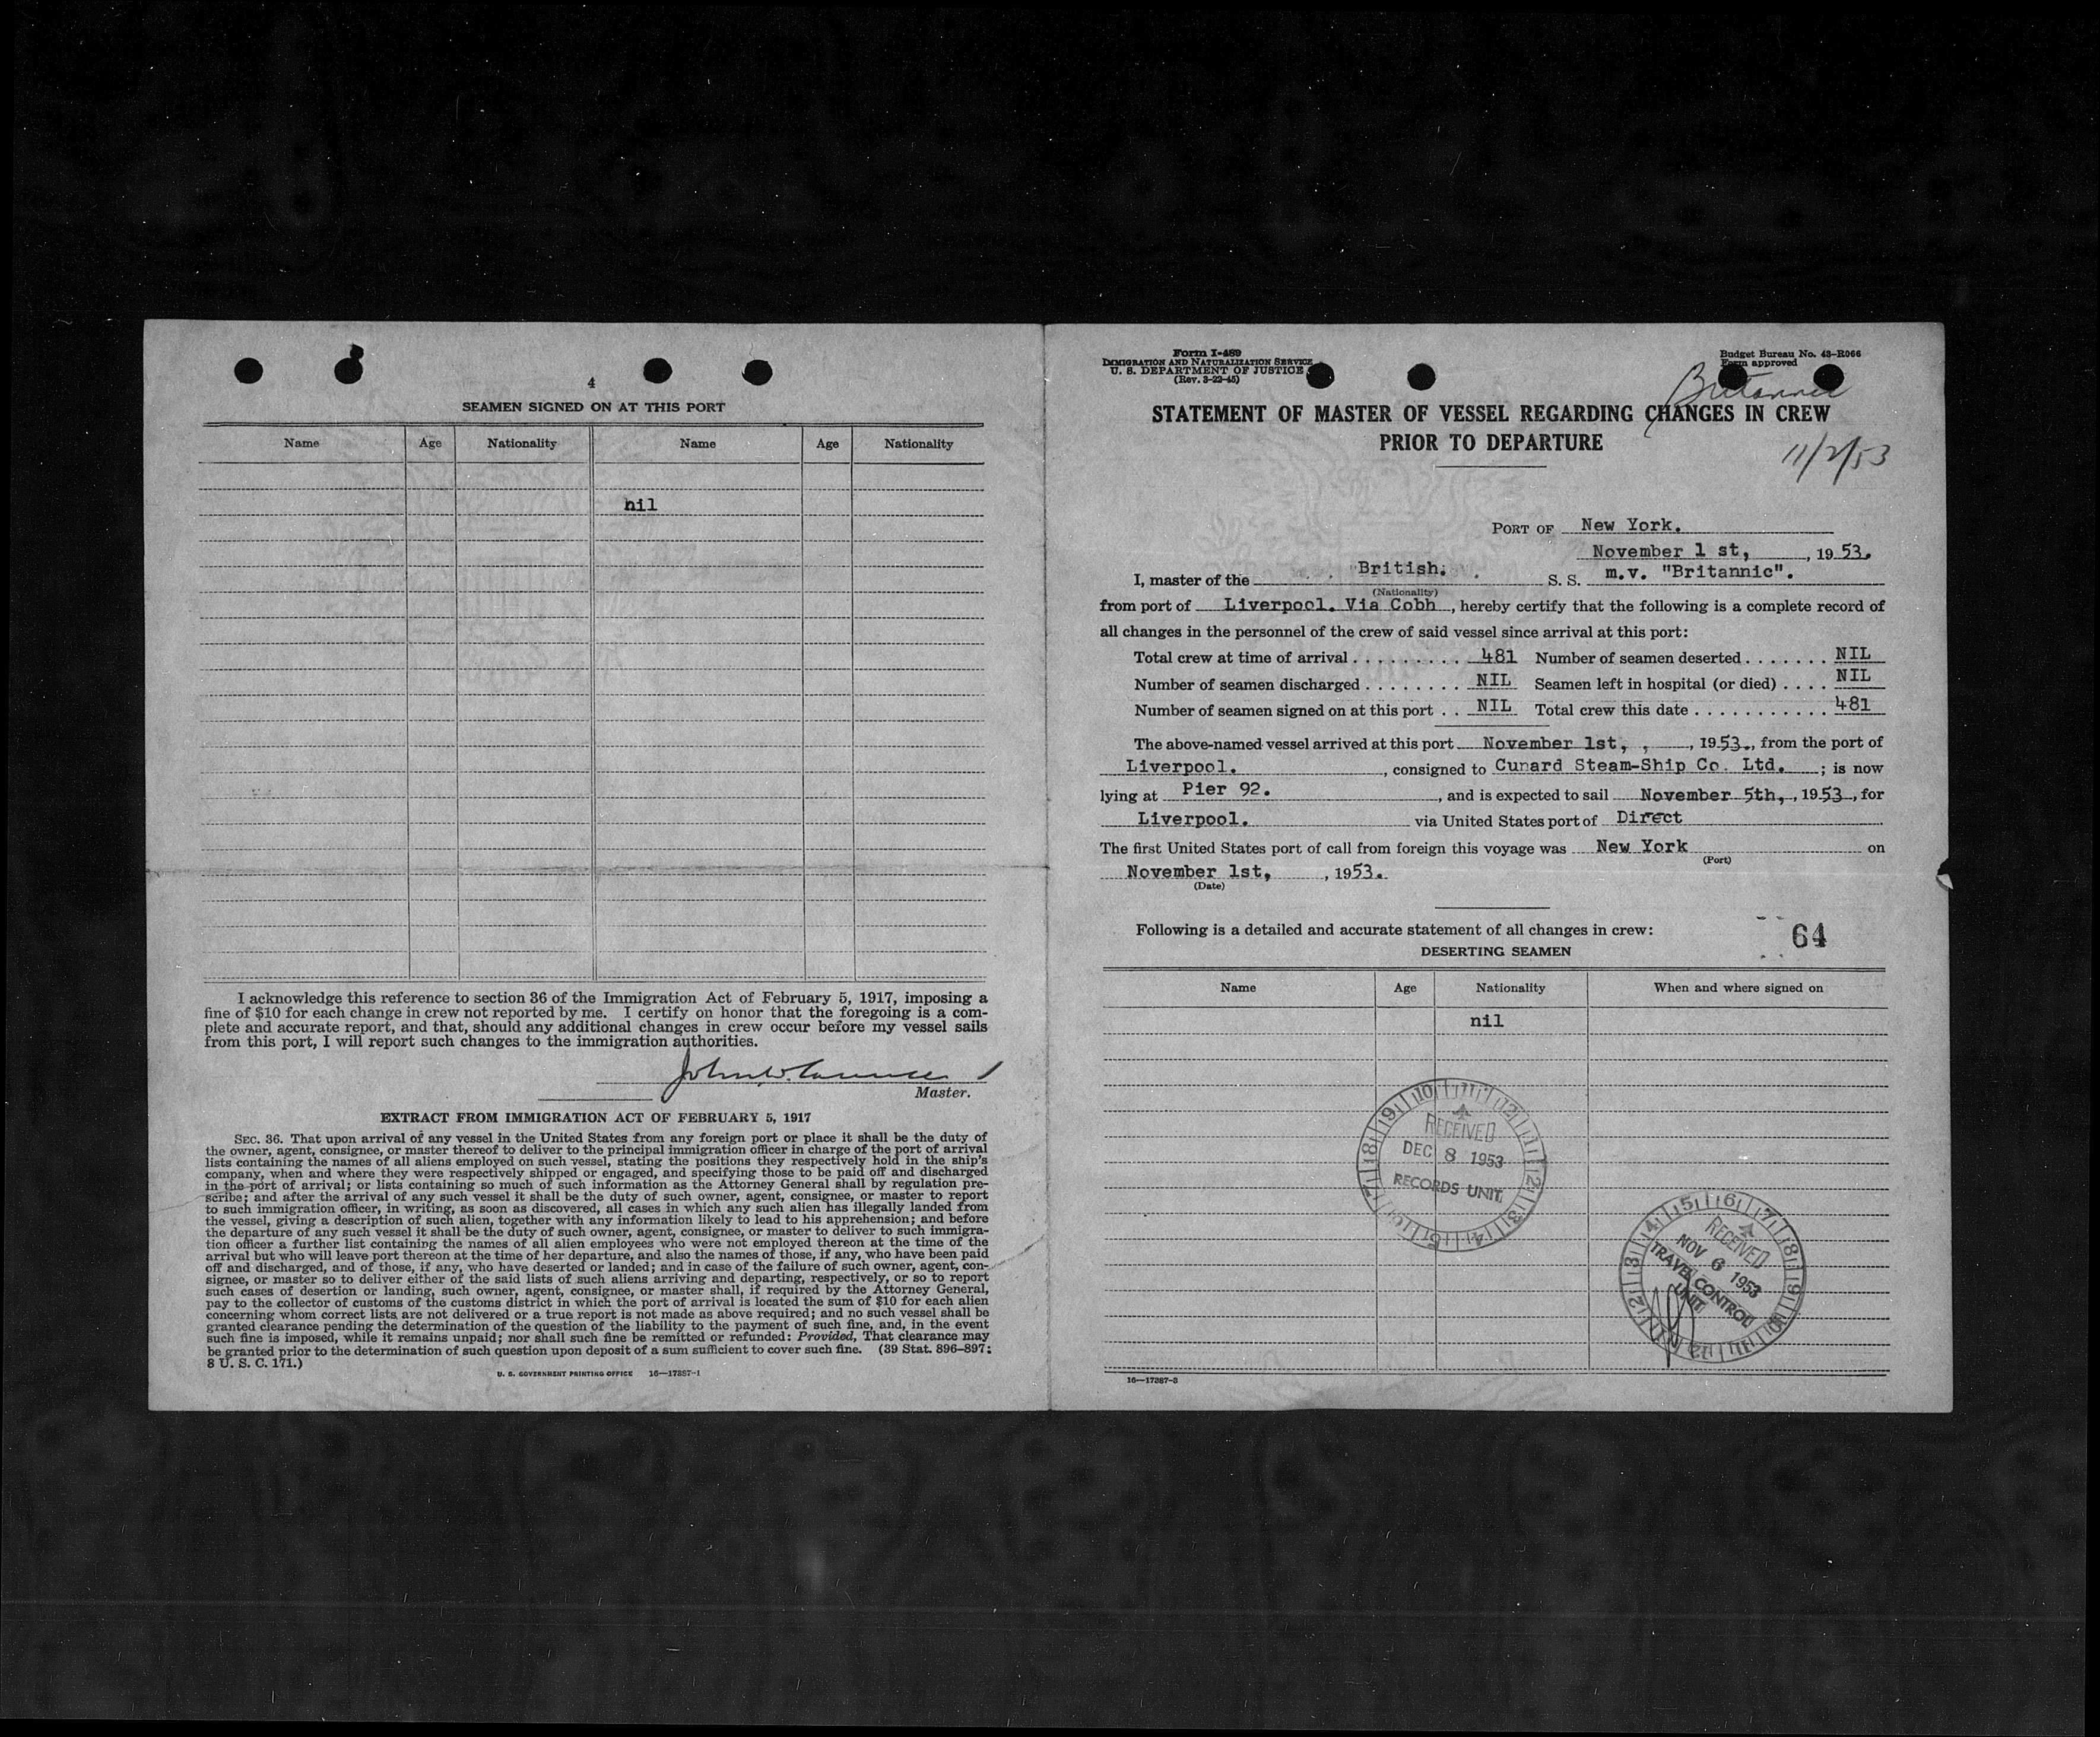 4
SEAMEN SIGNED ON AT THIS PORT
Name Age Nationality Name Age Nationality
nil
I acknowledge this reference to section 36 of the Immigration Act of February 5, 1917, imposing a
fine of $10 for each change in crew not reported by me. I certify on honor that the foregoing is a com-
plete and accurate report, and that, should any additional changes in crew occur before my vessel sails
from this port, I will report such changes to the immigration authorities.
Master.
EXTRACT FROM IMMIGRATION ACT OF FEBRUARY 5, 1917
SEC. 36. That upon arrival of any vessel in the United States from any foreign port or place it shall be the duty of
the owner, agent, consignee, or master thereof to deliver to the principal immigration officer in charge of the port of arrival
lists containing the names of all aliens employed on such vessel, stating the positions they respectively hold in the ship's
company, when and where they were respectively shipped or engaged, and specifying those to be paid off and discharged
in the port of arrival; or lists containing so much of such information as the Attorney General shall by regulation pre-
scribe; and after the arrival of any such vessel it shall be the duty of such owner, agent, consignee, or master to report
to such immigration officer, in writing, as soon as discovered, all cases in which any such alien has illegally landed from
the vessel, giving a description of such alien, together with any information likely to lead to his apprehension; and before
the departure of any such vessel it shall be the duty of such owner, agent, consignee, or master to deliver to such immigra-
tion officer a further list containing the names of all alien employees who were not employed thereon at the time of the
arrival but who will leave port thereon at the time of her departure, and also the names of those, if any, who have been paid
off and discharged, and of those, if any, who have deserted or landed; and in case of the failure of such owner, agent, con-
signee, or master so to deliver either of the said lists of such aliens arriving and departing, respectively, or so to report
such cases of desertion or landing, such owner, agent, consignee, or master shall, if required by the Attorney General,
pay to the collector of customs of the customs district in which the port of arrival is located the sum of $10 for each alien
concerning whom correct lists are not delivered or a true report is not made as above required; and no such vessel shall be
granted clearance pending the determination of the question of the liability to the payment of such fine, and, in the event
such fine is imposed, while it remains unpaid; nor shall such fine be remitted or refunded: Provided, That clearance may
be granted prior to the determination of such question upon deposit of a sum sufficient to cover such fine. (39 Stat. 896-897;
8 U. S. C. 171.)
U. S. GOVERNMENT PRINTING OFFICE 16—17387-1
Form I-489
IMMIGRATION AND NATURALIZATION SERVICE
U. S. DEPARTMENT OF JUSTICE
(Rev. 3-22-45)
Budget Bureau No. 43-R066
Form approved
Britannic
STATEMENT OF MASTER OF VESSEL REGARDING CHANGES IN CREW
PRIOR TO DEPARTURE
11/2/53
PORT OF New York.
November 1 st, , 19 53.
I, master of the British. S. S. m.v. "Britannic".
(Nationality)
from port of Liverpool. Via Cobh , hereby certify that the following is a complete record of
all changes in the personnel of the crew of said vessel since arrival at this port:
Total crew at time of arrival . . . . . . . . . . 481 Number of seamen deserted . . . . . . . NIL
Number of seamen discharged . . . . . . . . NIL Seamen left in hospital (or died) . . . . NIL
Number of seamen signed on at this port . . NIL Total crew this date . . . . . . . . . . . 481
The above-named vessel arrived at this port November 1st, , , 1953., from the port of
Liverpool. , consigned to Cunard Steam-Ship Co. Ltd. ; is now
lying at Pier 92. , and is expected to sail November 5th, , 1953 , for
Liverpool. via United States port of Direct
The first United States port of call from foreign this voyage was New York on
(Port)
November 1st, , 1953.
(Date)
Following is a detailed and accurate statement of all changes in crew:
64
DESERTING SEAMEN
Name Age Nationality When and where signed on
nil
RECEIVED
DEC 8 1953
RECORDS UNIT
RECEIVED
NOV 6 1953
TRAVEL CONTROL
UNIT
16—17387-3